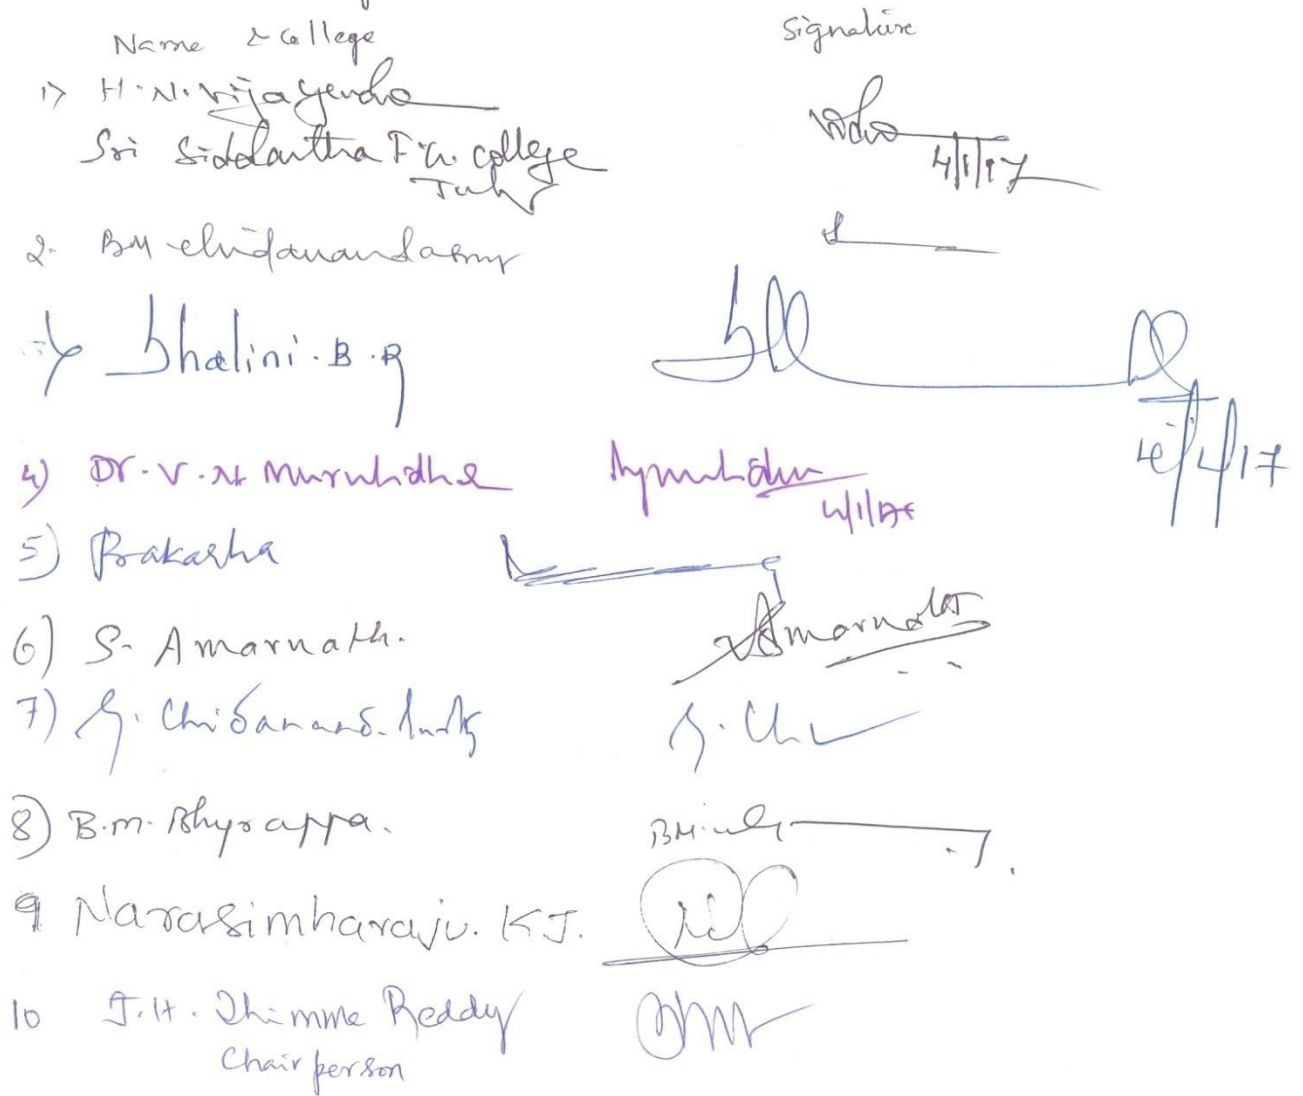 Name & College Signature
1) H.N. Vijayendra
4/1/17
Sri Siddartha F.G. College
2. BM
Shalini.B.R
4/1/17
4) Dr.V.N Murulidhara
4/1/17
5) Prakasha
6) S. Amarnath. Amarnath
7) G. Chidananda G. Ch
8) B.M. Bhyrappa. BM
9 Narasimharaju. K J.
10 J.H. Thimme Reddy
Chair person